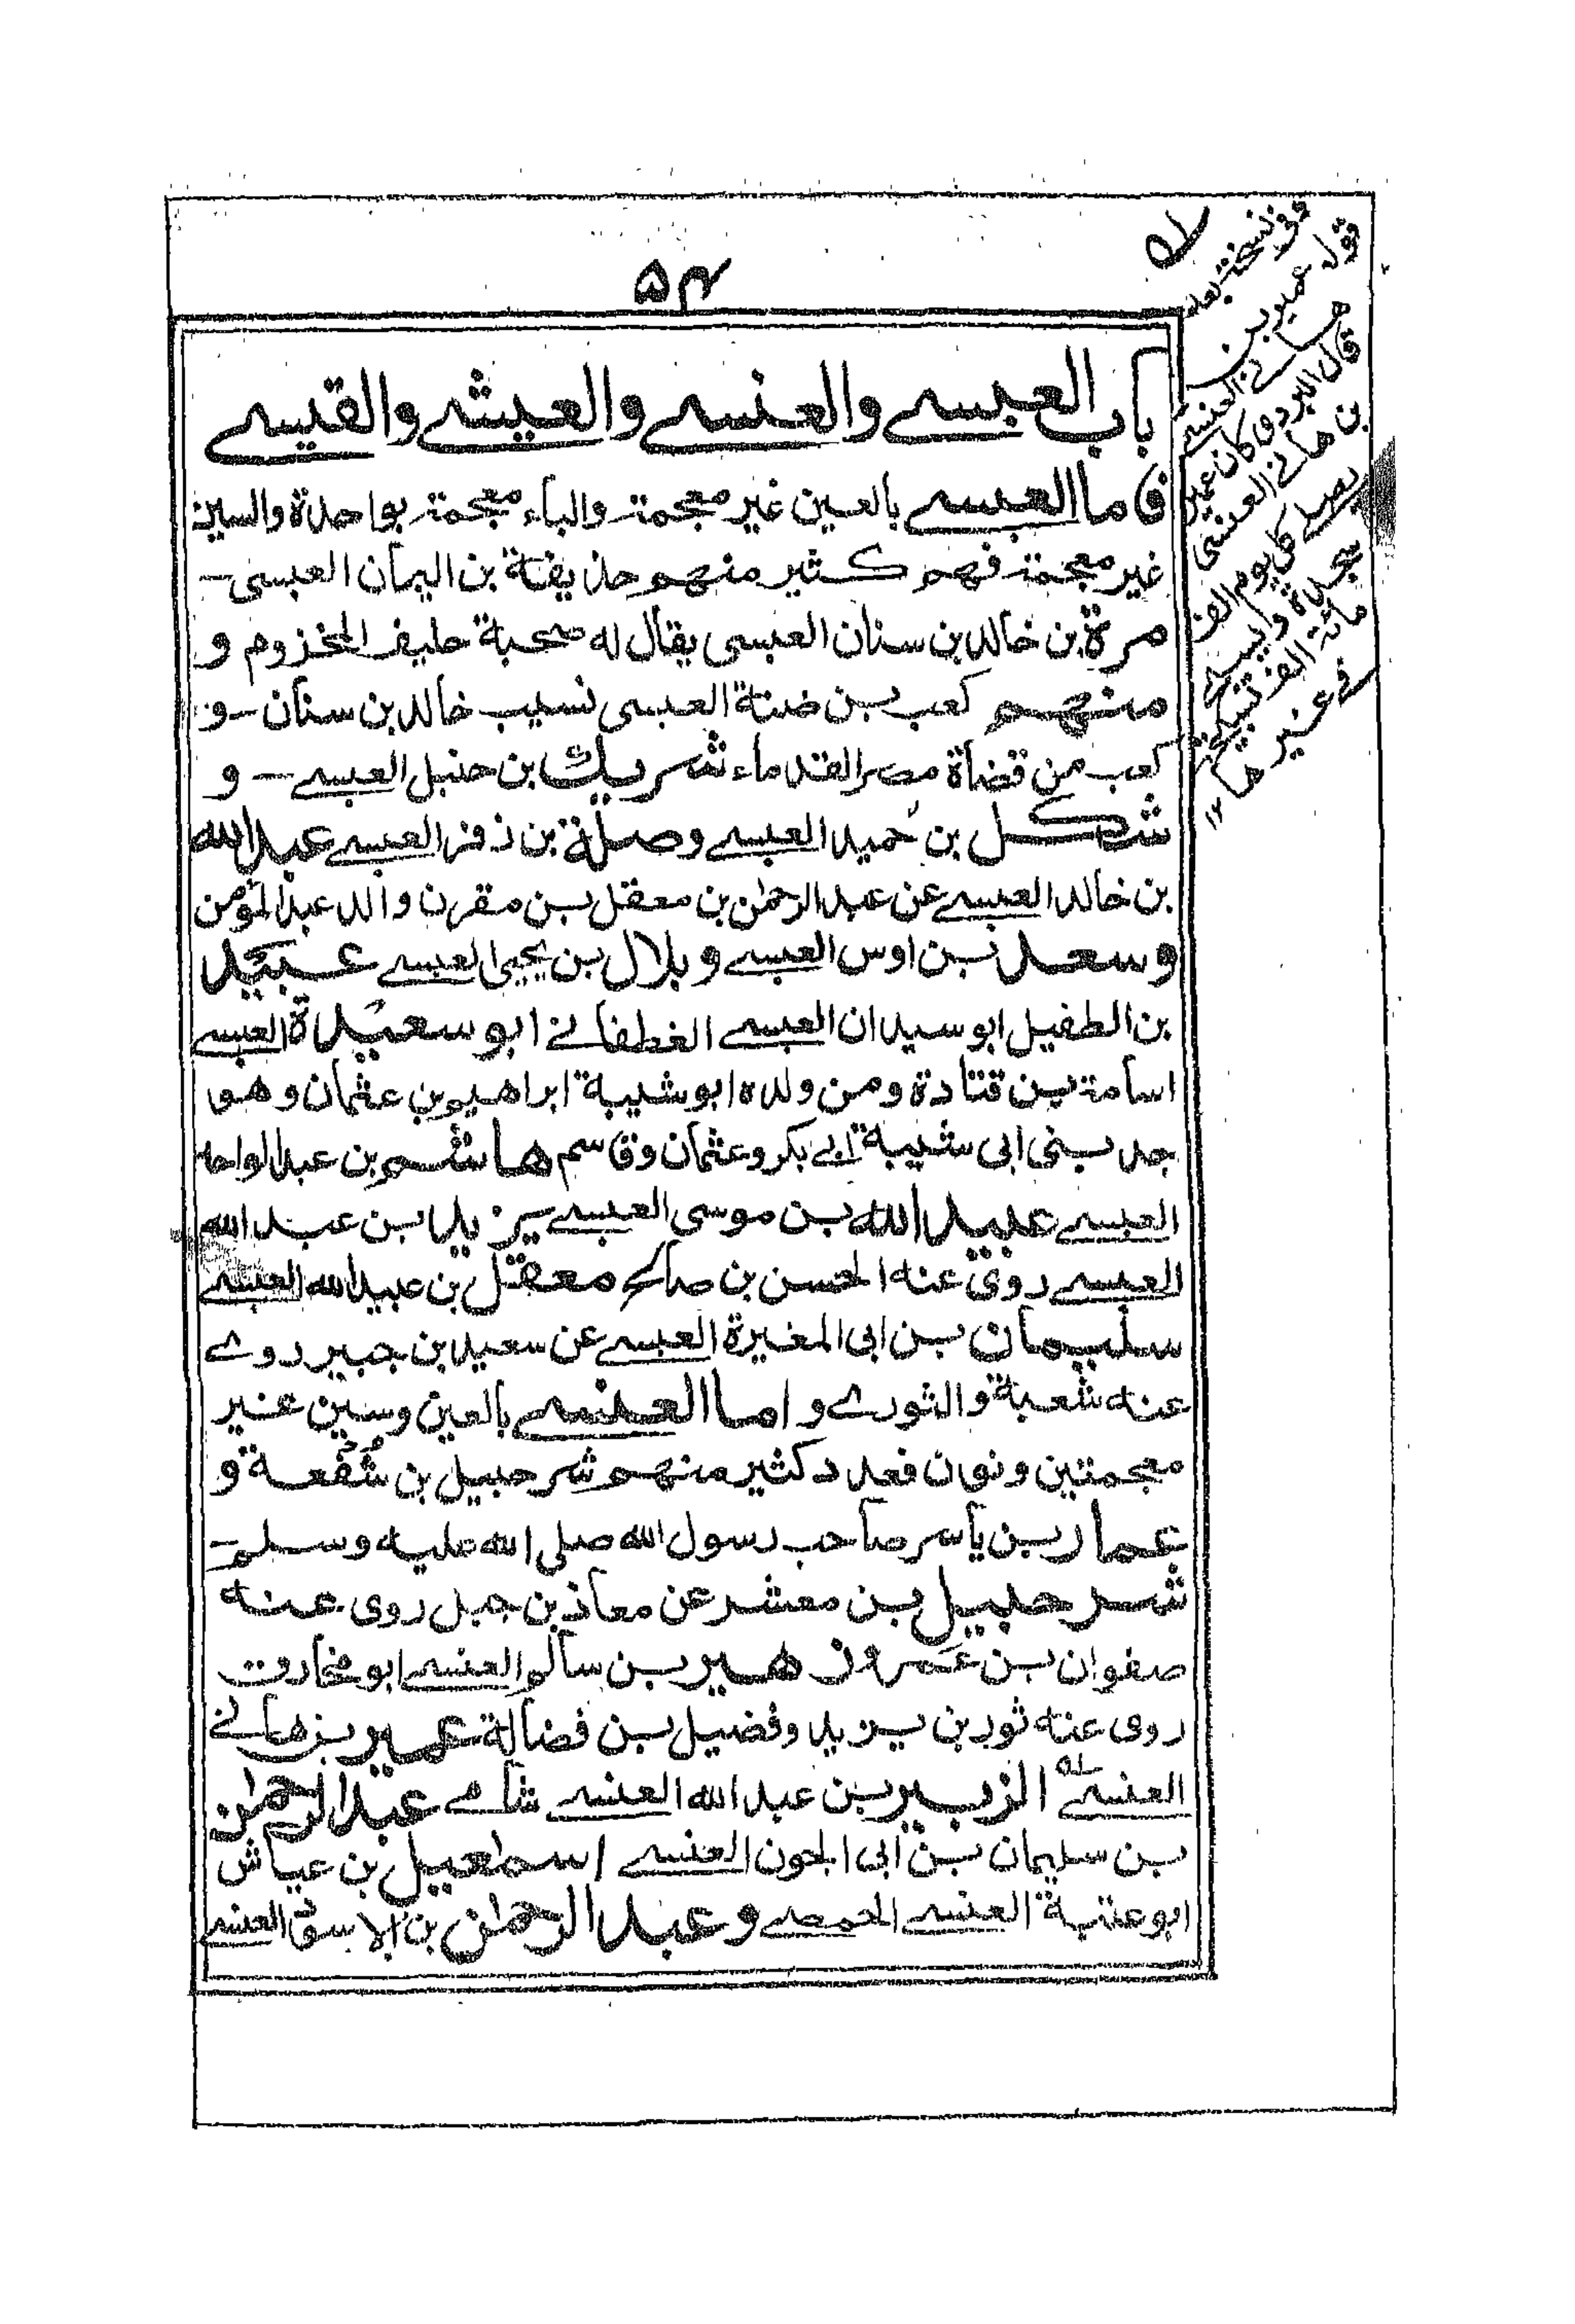 ٥٣
باب العبسے والعنسے والعيشے والقيسے
فاما العبسے بالعين غير معجمة والباء معجمة بواحدة والسين
غير معجمة فهم كثير منهم حذيفة بن اليمان العبسى –
مرة بن خالد بن سنان العبسى يقال له صحبة حليف المخزوم و
منهم كعب بن ضنة العبسى نسيب خالد بن سنان – و
كعب من قضاة مصر القدماء شريك بن حنبل العبسے – و
شكل بن حميد العبسے وصلة بن زفر العبسے عبد الله
بن خالد العبسے عن عبد الرحمٰن بن معقل بن مقرن والد عبد المؤمن
وسعد بن اوس العبسے وبلال بن يحيى العبسے عبيد
بن الطفيل ابو سيدان العبسے الغطفانے ابو سعيدة العبسے
اسامة بن قتادة ومن ولده ابو شيبة ابراهيم بن عثمان وهو
جد بنى ابى شيبة ابے بكر وعثمان وقاسم هاشم بن عبد الواحد
العبسے عبيد الله بن موسى العبسے يزيد بن عبد الله
العبسے روى عنه الحسن بن صالح معقل بن عبيد الله العبسے
سليمان بن ابى المغيرة العبسے عن سعيد بن جبير روے
عنه شعبة والثورے واما العنسے بالعين وسين غير
معجمتين ونون فعدد كثير منهم شرحبيل بن شُفْعة و
عمار بن ياسر صاحب رسول الله صلى الله عليه وسلم –
شرحبيل بن معشر عن معاذ بن جبل روى عنه
صفوان بن عمرو زهير بن سالم العنسے ابو مخارق
روى عنه ثور بن يزيد وفضيل بن فضالة عمير بن هانے
العنسے الزبير بن عبد الله العنسے شامے عبد الرحمٰن
بن سليمان بن ابى الجون العنسے اسمٰعيل بن عياش
ابو عتبة العنسے الحمصے وعبد الرحمٰن بن الاسود العنسے
وفى نسخة بعد
قوله عمير بن
هانے العنسے
قال كان عمير
بن هانے العنسى
يصلے كل يوم الف
سجدة ويسبح
مائة الف تسبيحة
فے غيرها ١٢